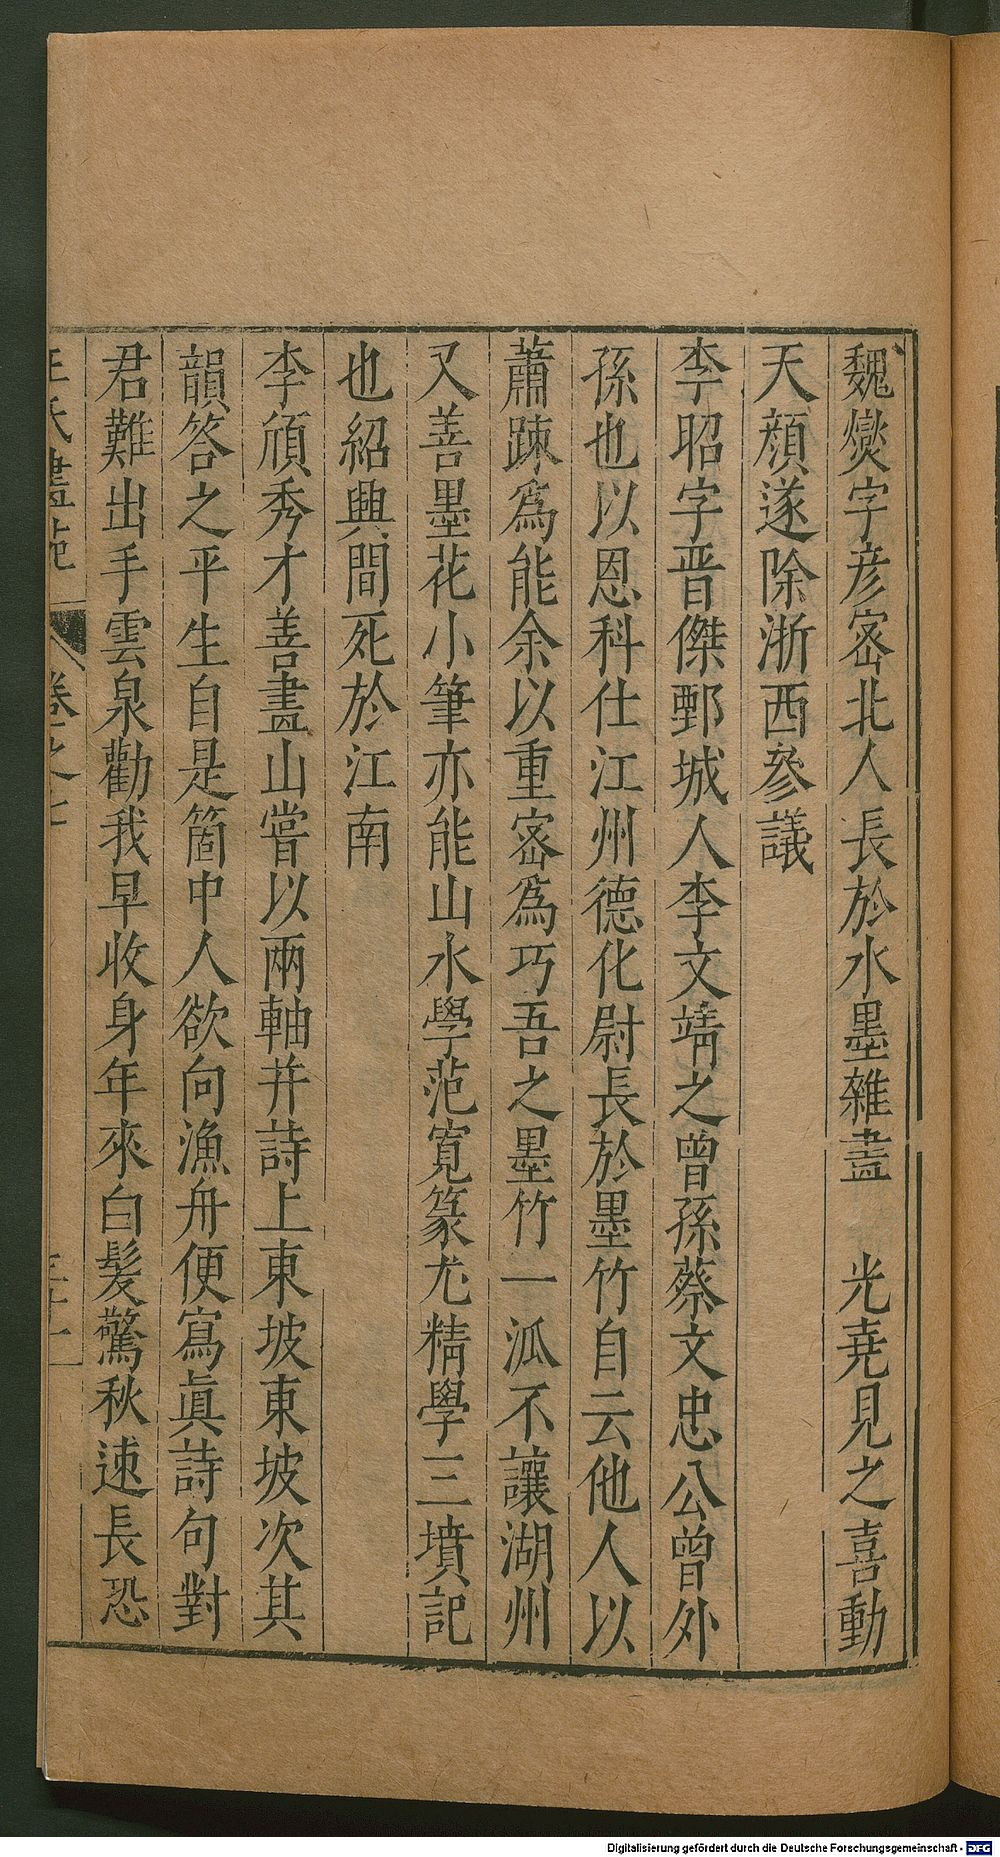 魏燮字彦宻北人長於水墨雜畫　光堯見之喜動
天顔遂除浙西參議
李昭字晋傑鄄城人李文靖之曾孫蔡文忠公曾外
孫也以恩科仕江州德化尉長於墨竹自云他人以
蕭踈爲能余以重宻爲巧吾之墨竹一泒不讓湖州
又善墨花小筆亦能山水學范寛篆尤精學三墳記
也紹興間死於江南
李頎秀才善畫山嘗以兩軸并詩上東坡東坡次其
韻答之平生自是箇中人欲向漁舟便寫眞詩句對
君難出手雲泉勸我早收身年來白髪驚秋速長恐
王氏畫苑 卷之七
Digitalisierung gefördert durch die Deutsche Forschungsgemeinschaft - DFG